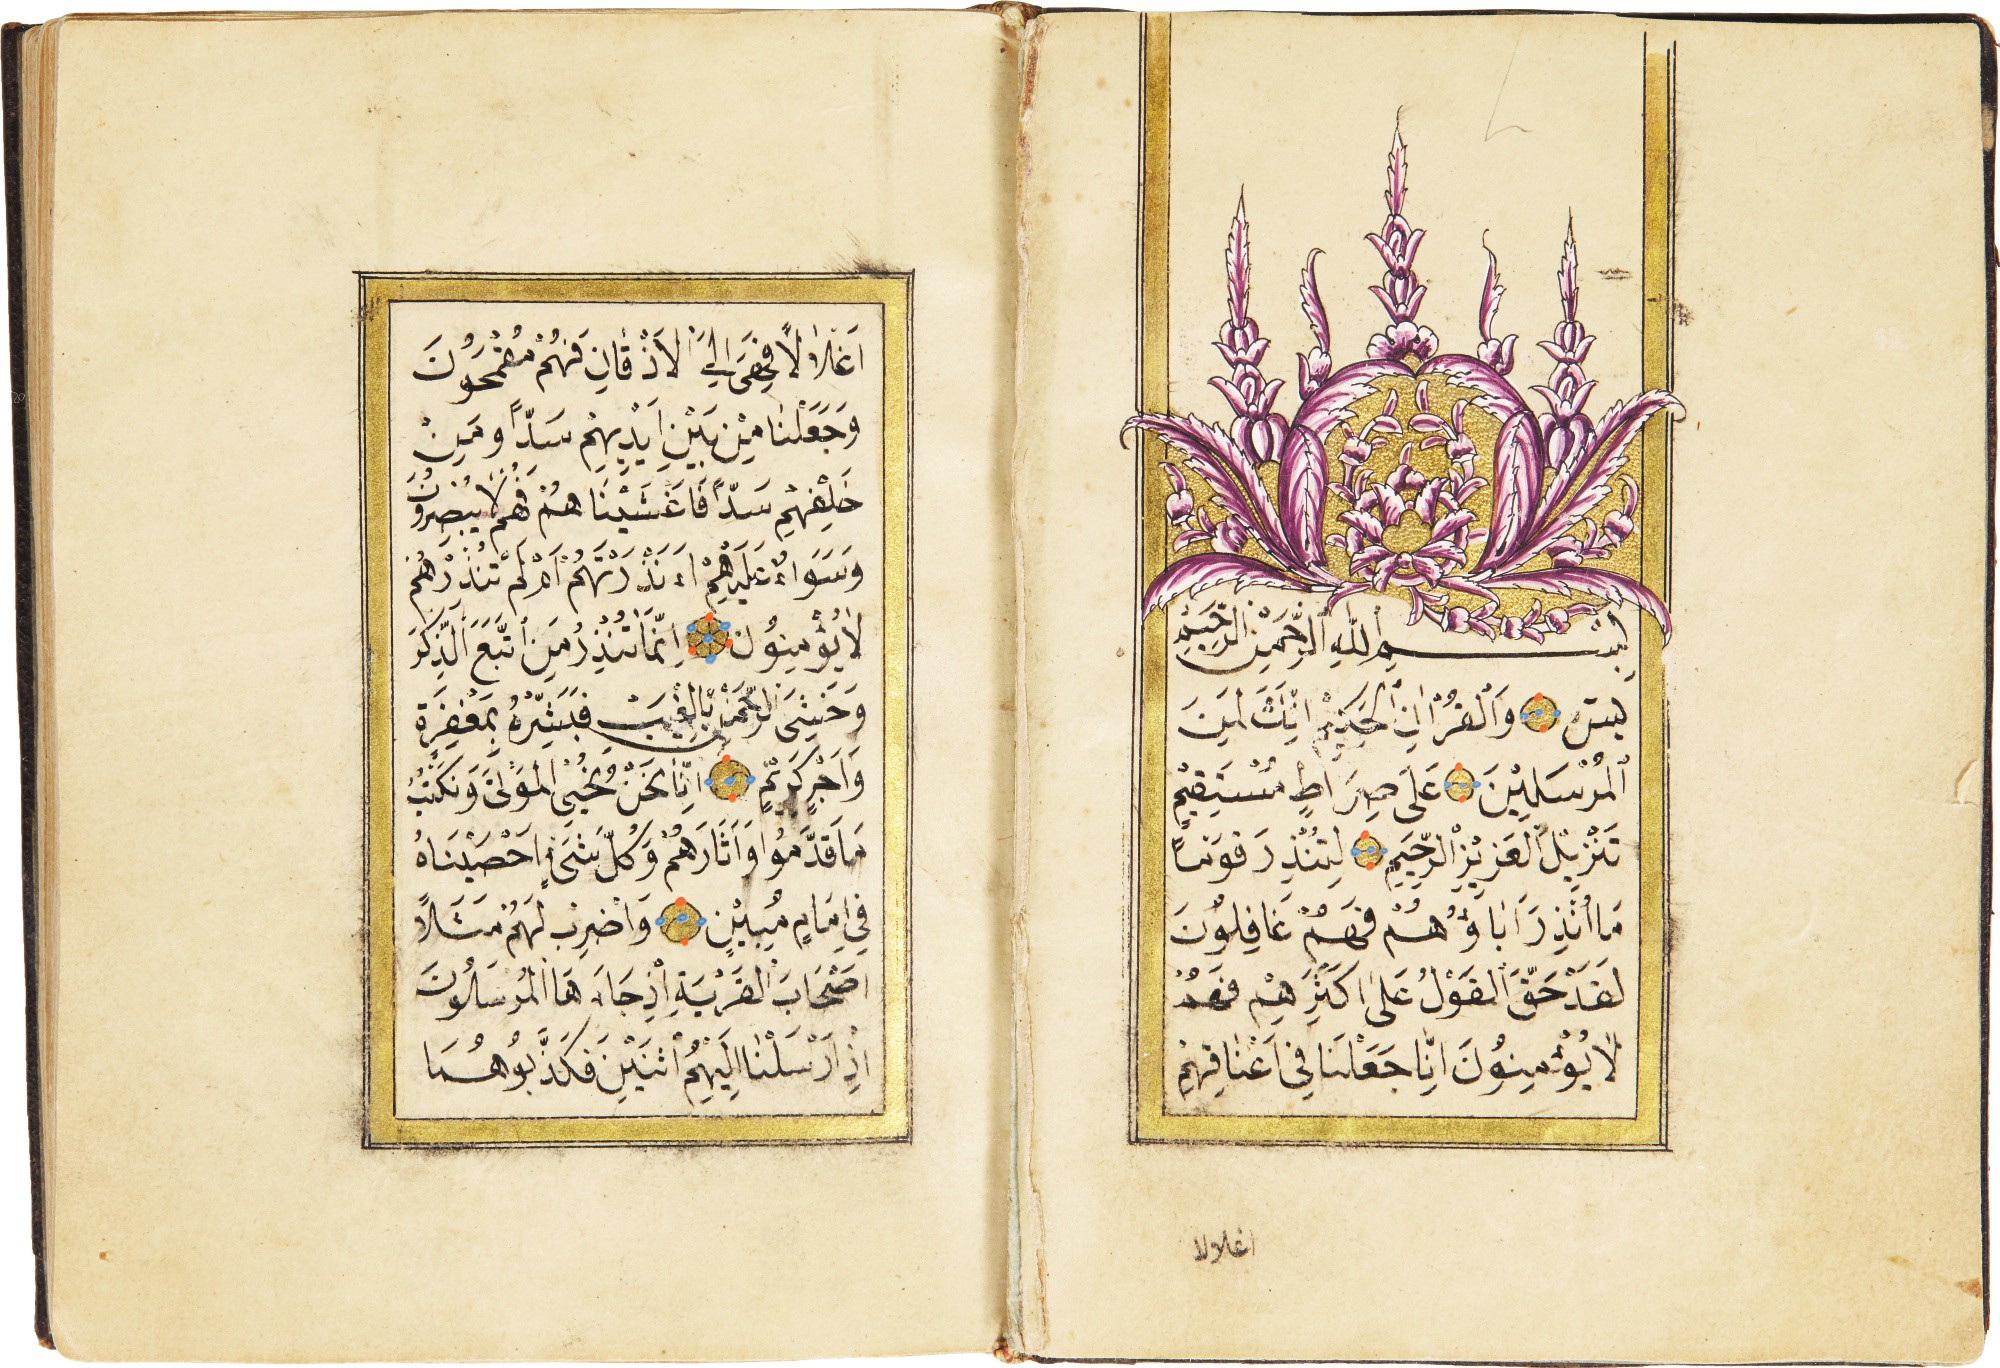 بِسْمِ ٱللهِ ٱلرَّحْمٰنِ ٱلرَّحِيمِ
يٰسٓ وَٱلْقُرْاٰنِ ٱلْحَكِيمِ اِنَّكَ لَمِنَ
ٱلْمُرْسَلِينَ عَلٰى صِرَاطٍ مُسْتَقِيمٍ
تَنْزِيلَ ٱلْعَزِيزِ ٱلرَّحِيمِ لِتُنْذِرَ قَوْمًا
مَا اُنْذِرَ اٰبَاؤُهُمْ فَهُمْ غَافِلُونَ
لَقَدْ حَقَّ ٱلْقَوْلُ عَلٰى اَكْثَرِهِمْ فَهُمْ
لَا يُؤْمِنُونَ اِنَّا جَعَلْنَا فِى اَعْنَاقِهِمْ
اغلالا
اَغْلَالًا فَهِىَ اِلَى ٱلْاَذْقَانِ فَهُمْ مُقْمَحُونَ
وَجَعَلْنَا مِنْ بَيْنِ اَيْدِيهِمْ سَدًّا وَمِنْ
خَلْفِهِمْ سَدًّا فَاَغْشَيْنَاهُمْ فَهُمْ لَا يُبْصِرُونَ
وَسَوَاءٌ عَلَيْهِمْ ءَاَنْذَرْتَهُمْ اَمْ لَمْ تُنْذِرْهُمْ
لَا يُؤْمِنُونَ اِنَّمَا تُنْذِرُ مَنِ ٱتَّبَعَ ٱلذِّكْرَ
وَخَشِىَ ٱلرَّحْمٰنَ بِٱلْغَيْبِ فَبَشِّرْهُ بِمَغْفِرَةٍ
وَاَجْرٍ كَرِيمٍ اِنَّا نَحْنُ نُحْيِى ٱلْمَوْتٰى وَنَكْتُبُ
مَا قَدَّمُوا وَاٰثَارَهُمْ وَكُلَّ شَىْءٍ اَحْصَيْنَاهُ
فِى اِمَامٍ مُبِينٍ وَاضْرِبْ لَهُمْ مَثَلًا
اَصْحَابَ ٱلْقَرْيَةِ اِذْ جَاءَهَا ٱلْمُرْسَلُونَ
اِذْ اَرْسَلْنَا اِلَيْهِمُ ٱثْنَيْنِ فَكَذَّبُوهُمَا